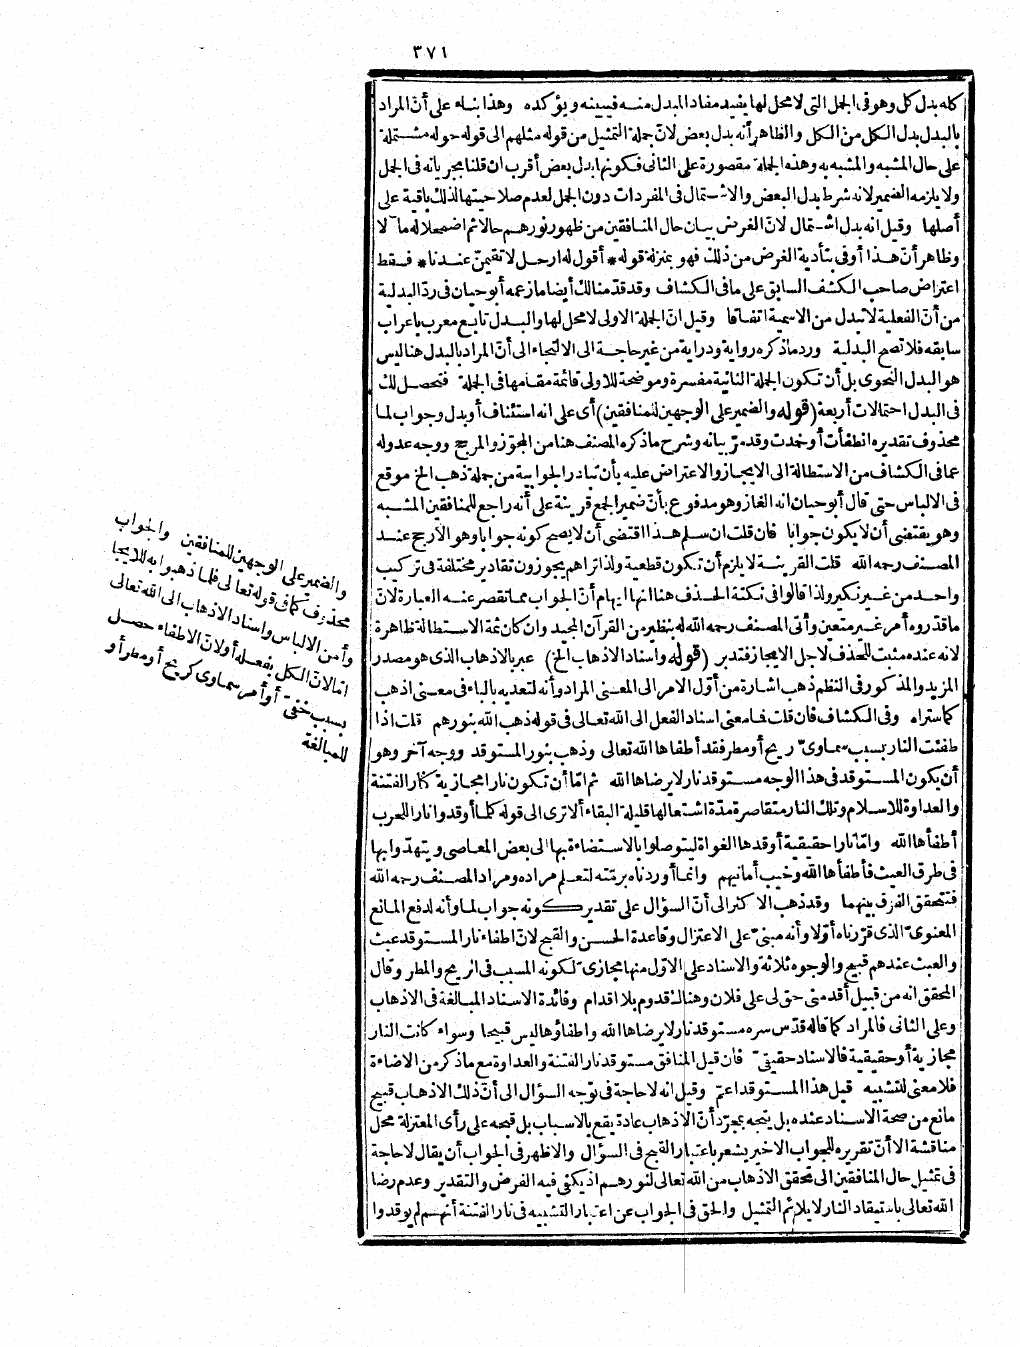 ٣٧١
كله بدل كل وهو في الجمل التي لا محل لها يفيد مفاد المبدل منه فيبينه ويؤكده وهذا بناء على أنّ المراد
بالبدل بدل الكل من الكل والظاهر أنه بدل بعض لانّ جملة التمثيل من قوله مثلهم الى قوله حوله مشتملة
على حال المشبه والمشبه به وهذه الجملة مقصورة على الثاني فكونها بدل بعض أقرب ان قلنا بجريانه في الجمل
ولا يلزمه الضمير لانه شرط بدل البعض والاشتمال في المفردات دون الجمل لعدم صلاحيتها لذلك باقية على
أصلها وقيل انه بدل اشتمال لانّ الغرض بيان حال المنافقين من ظهور نورهم حالا ثم اضمحلاله مآلا
وظاهر أنّ هذا أوفى بتأدية الغرض من ذلك فهو بمنزلة قوله * أقول له ارحل لا تقيمنّ عندنا * فسقط
اعتراض صاحب الكشف السابق على ما في الكشاف وقد قدّمنا لك أيضا ما زعمه أبو حيان في ردّ البدلية
من أنّ الفعلية لا تبدل من الاسمية اتفاقا وقيل انّ الجملة الاولى لا محل لها والبدل تابع معرب باعراب
سابقه فلا تصح البدلية وردّ ما ذكره رواية ودراية من غير حاجة الى الالتجاء الى أنّ المراد بالبدل هنا ليس
هو البدل النحوى بل أن تكون الجملة الثانية مفسرة وموضحة للاولى قائمة مقامها في الجملة فتحصل لك
في البدل احتمالات أربعة (قوله والضمير على الوجهين للمنافقين) أى على انه استئناف أو بدل وجواب لما
محذوف تقديره انطفأت أو خمدت وقد مرّ بيانه وشرح ما ذكره المصنف هنا من المجوّز والمرجح ووجه عدوله
عما في الكشاف من الاستطالة الى الايجاز والاعتراض عليه بأن تبادر الجوابية من جملة ذهب الخ موقع
في الالباس حتى قال أبو حيان انه الغاز وهو مدفوع بأنّ ضمير الجمع قرينة على أنه راجع للمنافقين المشبه
وهو يقتضى أن لا يكون جوابا فان قلت ان سلم هذا اقتضى أن لا يصح كونه جوابا وهو الأرجح عند
المصنف رحمه الله قلت القرينة لا يلزم أن تكون قطعية ولذا تراهم يجوزون تقادير مختلفة في تركيب
واحد من غير نكير ولذا قالوا في نكتة الحذف هنا انها ايهام أنّ الجواب مما تقصر عنه العبارة لانّ
ما قدّروه أمر غير متعين وأتى المصنف رحمه الله له بنظير من القرآن المجيد وان كان ثمة الاستطالة ظاهرة
لانه عنده مثبت للحذف لاجل الايجاز فتدبر (قوله واسناد الاذهاب الخ) عبر بالاذهاب الذى هو مصدر
المزيد والمذكور في النظم ذهب اشارة من أوّل الامر الى المعنى المراد وأنه لتعديه بالباء في معنى اذهب
كما ستراه وفى الكشاف فان قلت فما معنى اسناد الفعل الى الله تعالى في قوله ذهب الله بنورهم قلت اذا
طفئت النار بسبب سماوىّ ريح أو مطر فقد أطفأها الله تعالى وذهب بنور المستوقد ووجه آخر وهو
أن يكون المستوقد في هذا الوجه مستوقد نار لا يرضاها الله ثم امّا أن تكون نارا مجازية كنار الفتنة
والعداوة للاسلام وتلك النار متقاصرة مدّة اشتعالها قليلة البقاء ألا ترى الى قوله كلما أوقدوا نارا للحرب
أطفأها الله وامّا نارا حقيقية أوقدها الغواة ليتوصلوا بالاستضاءة بها الى بعض المعاصى ويتهدّوا بها
في طرق العبث فأطفأها الله وخيب أمانيهم وانما أوردناه برمّته لتعلم مراده ومراد المصنف رحمه الله
فتتحقق الفرق بينهما وقد ذهب الاكثر الى أنّ السؤال على تقدير كونه جواب لما وأنه لدفع المانع
المعنوىّ الذى قرّرناه أوّلا وأنه مبنىّ على الاعتزال وقاعدة الحسن والقبح لانّ اطفاء نار المستوقد عبث
والعبث عندهم قبيح والوجوه ثلاثة والاسناد على الاوّل منها مجازىّ لكونه المسبب في الريح والمطر وقال
المحقق انه من قبيل أقدمنى حق لى على فلان وهنالك قدوم بلا اقدام وفائدة الاسناد المبالغة في الاذهاب
وعلى الثانى فالمراد كما قاله قدّس سره مستوقد نار لا يرضاها الله واطفاؤها ليس قبيحا وسواء كانت النار
مجازية أو حقيقية فالاسناد حقيقىّ فان قيل المنافق مستوقد نار الفتنة والعداوة مع ما ذكر من الاضاءة
فلا معنى لتشبيه قيل هذا المستوقد اعمّ وقيل انه لا حاجة في توّجه السؤال الى أنّ ذلك الاذهاب قبيح
مانع من صحة الاسناد عنده بل يتجه بمجرّد أنّ الاذهاب عادة يقع بالاسباب بل قبحه على رأى المعتزلة محل
مناقشة الا أنّ تقريره للجواب الاخير يشعر باعتبار القبح في السؤال والاظهر في الجواب أن يقال لا حاجة
في تمثيل حال المنافقين الى تحقق الاذهاب من الله تعالى لنورهم اذ يكفى فيه الفرض والتقدير وعدم رضا
الله تعالى باستيقاد النار لا يلائم التمثيل والحق في الجواب عن اعتبار التشبيه في نار الفتنة أنهم لم يوقدوا
والضمير على الوجهين للمنافقين والجواب
محذوف كما في قوله تعالى فلما ذهبوا به للايجاز
وأمن الالباس واسناد الاذهاب الى الله تعالى
امّا لانّ الكل بفعله أو لانّ الاطفاء حصل
بسبب خفىّ أو أمر سماوى كريح أو مطر أو
للمبالغة